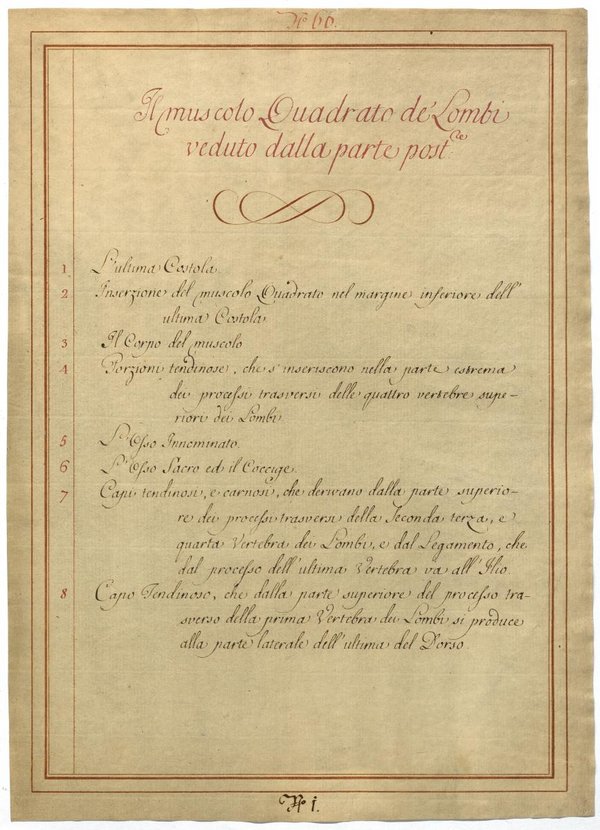 Nº 66.
Il muscolo Quadrato de' Lombi
veduto dalla parte post.re
1 L'ultima Costola
2 Inserzione del muscolo Quadrato nel margine inferiore dell'
ultima Costola
3 Il Corpo del muscolo
4 Porzioni tendinose, che s'inseriscono nella parte estrema
dei processi trasversi delle quattro vertebre supe-
riori dei Lombi
5 L'Osso Innominato.
6 L'Osso Sacro ed il Coccige.
7 Capi tendinosi, e carnosi, che derivano dalla parte superio-
re dei processi trasversi della Seconda terza, e
quarta Vertebra dei Lombi, e dal Legamento, che
dal processo dell'ultima Vertebra va all'Ilio.
8 Capo Tendinoso, che dalla parte superiore del processo tra-
sverso della prima Vertebra dei Lombi si produce
alla parte laterale dell'ultima del Dorso.